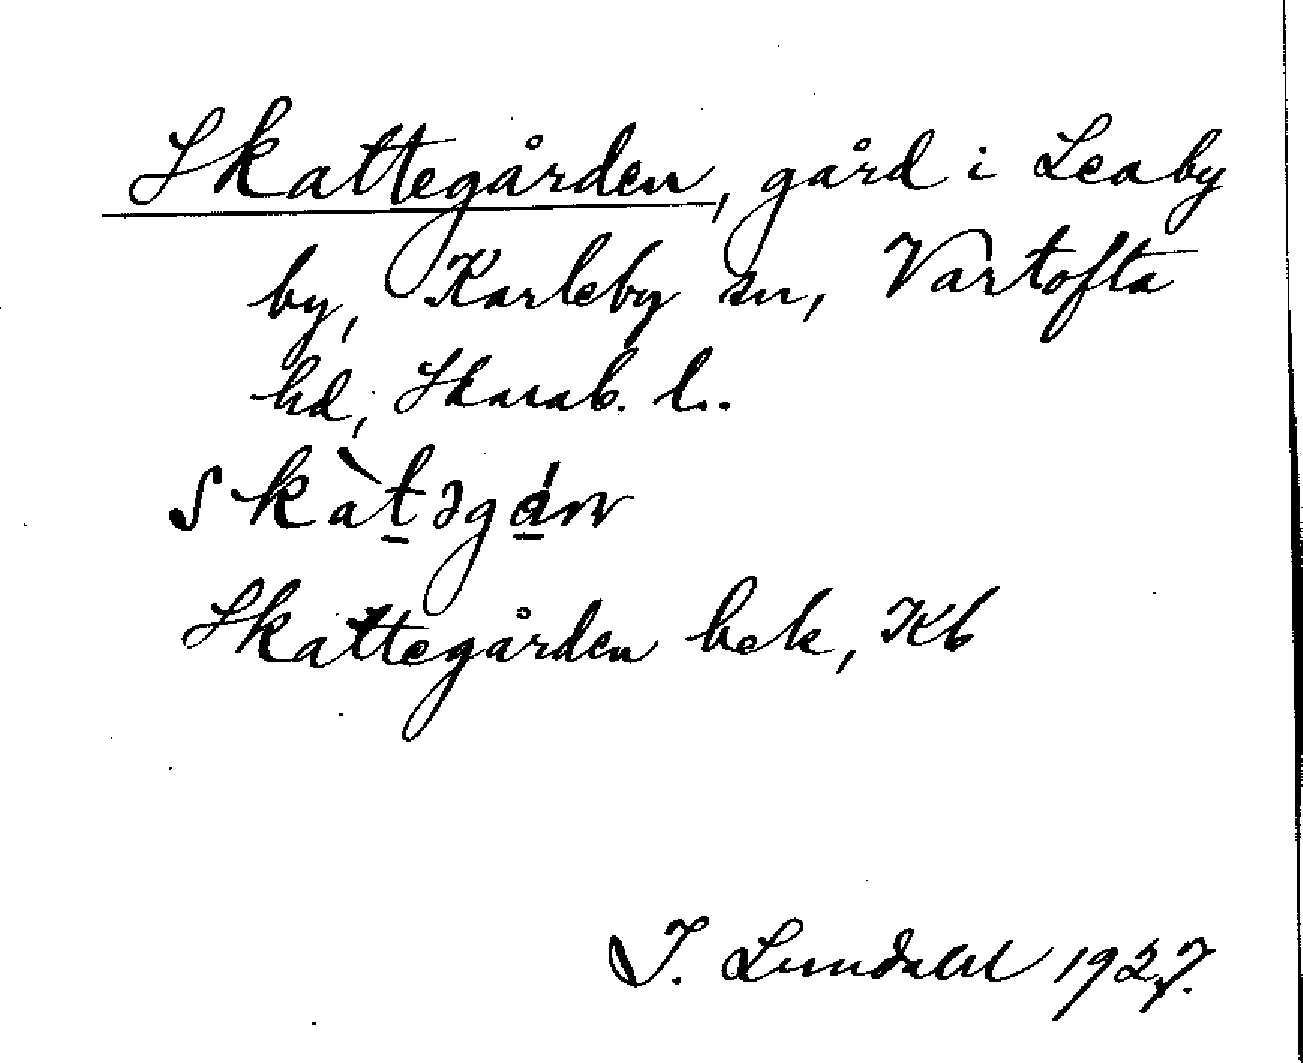 Skattegården, gård i Leaby
by, Karleby sn, Vartofta
hd, Skarab. l.
skàt̠əgá̠rn
Skattegården bek, Kb
I. Lundahl 1927.